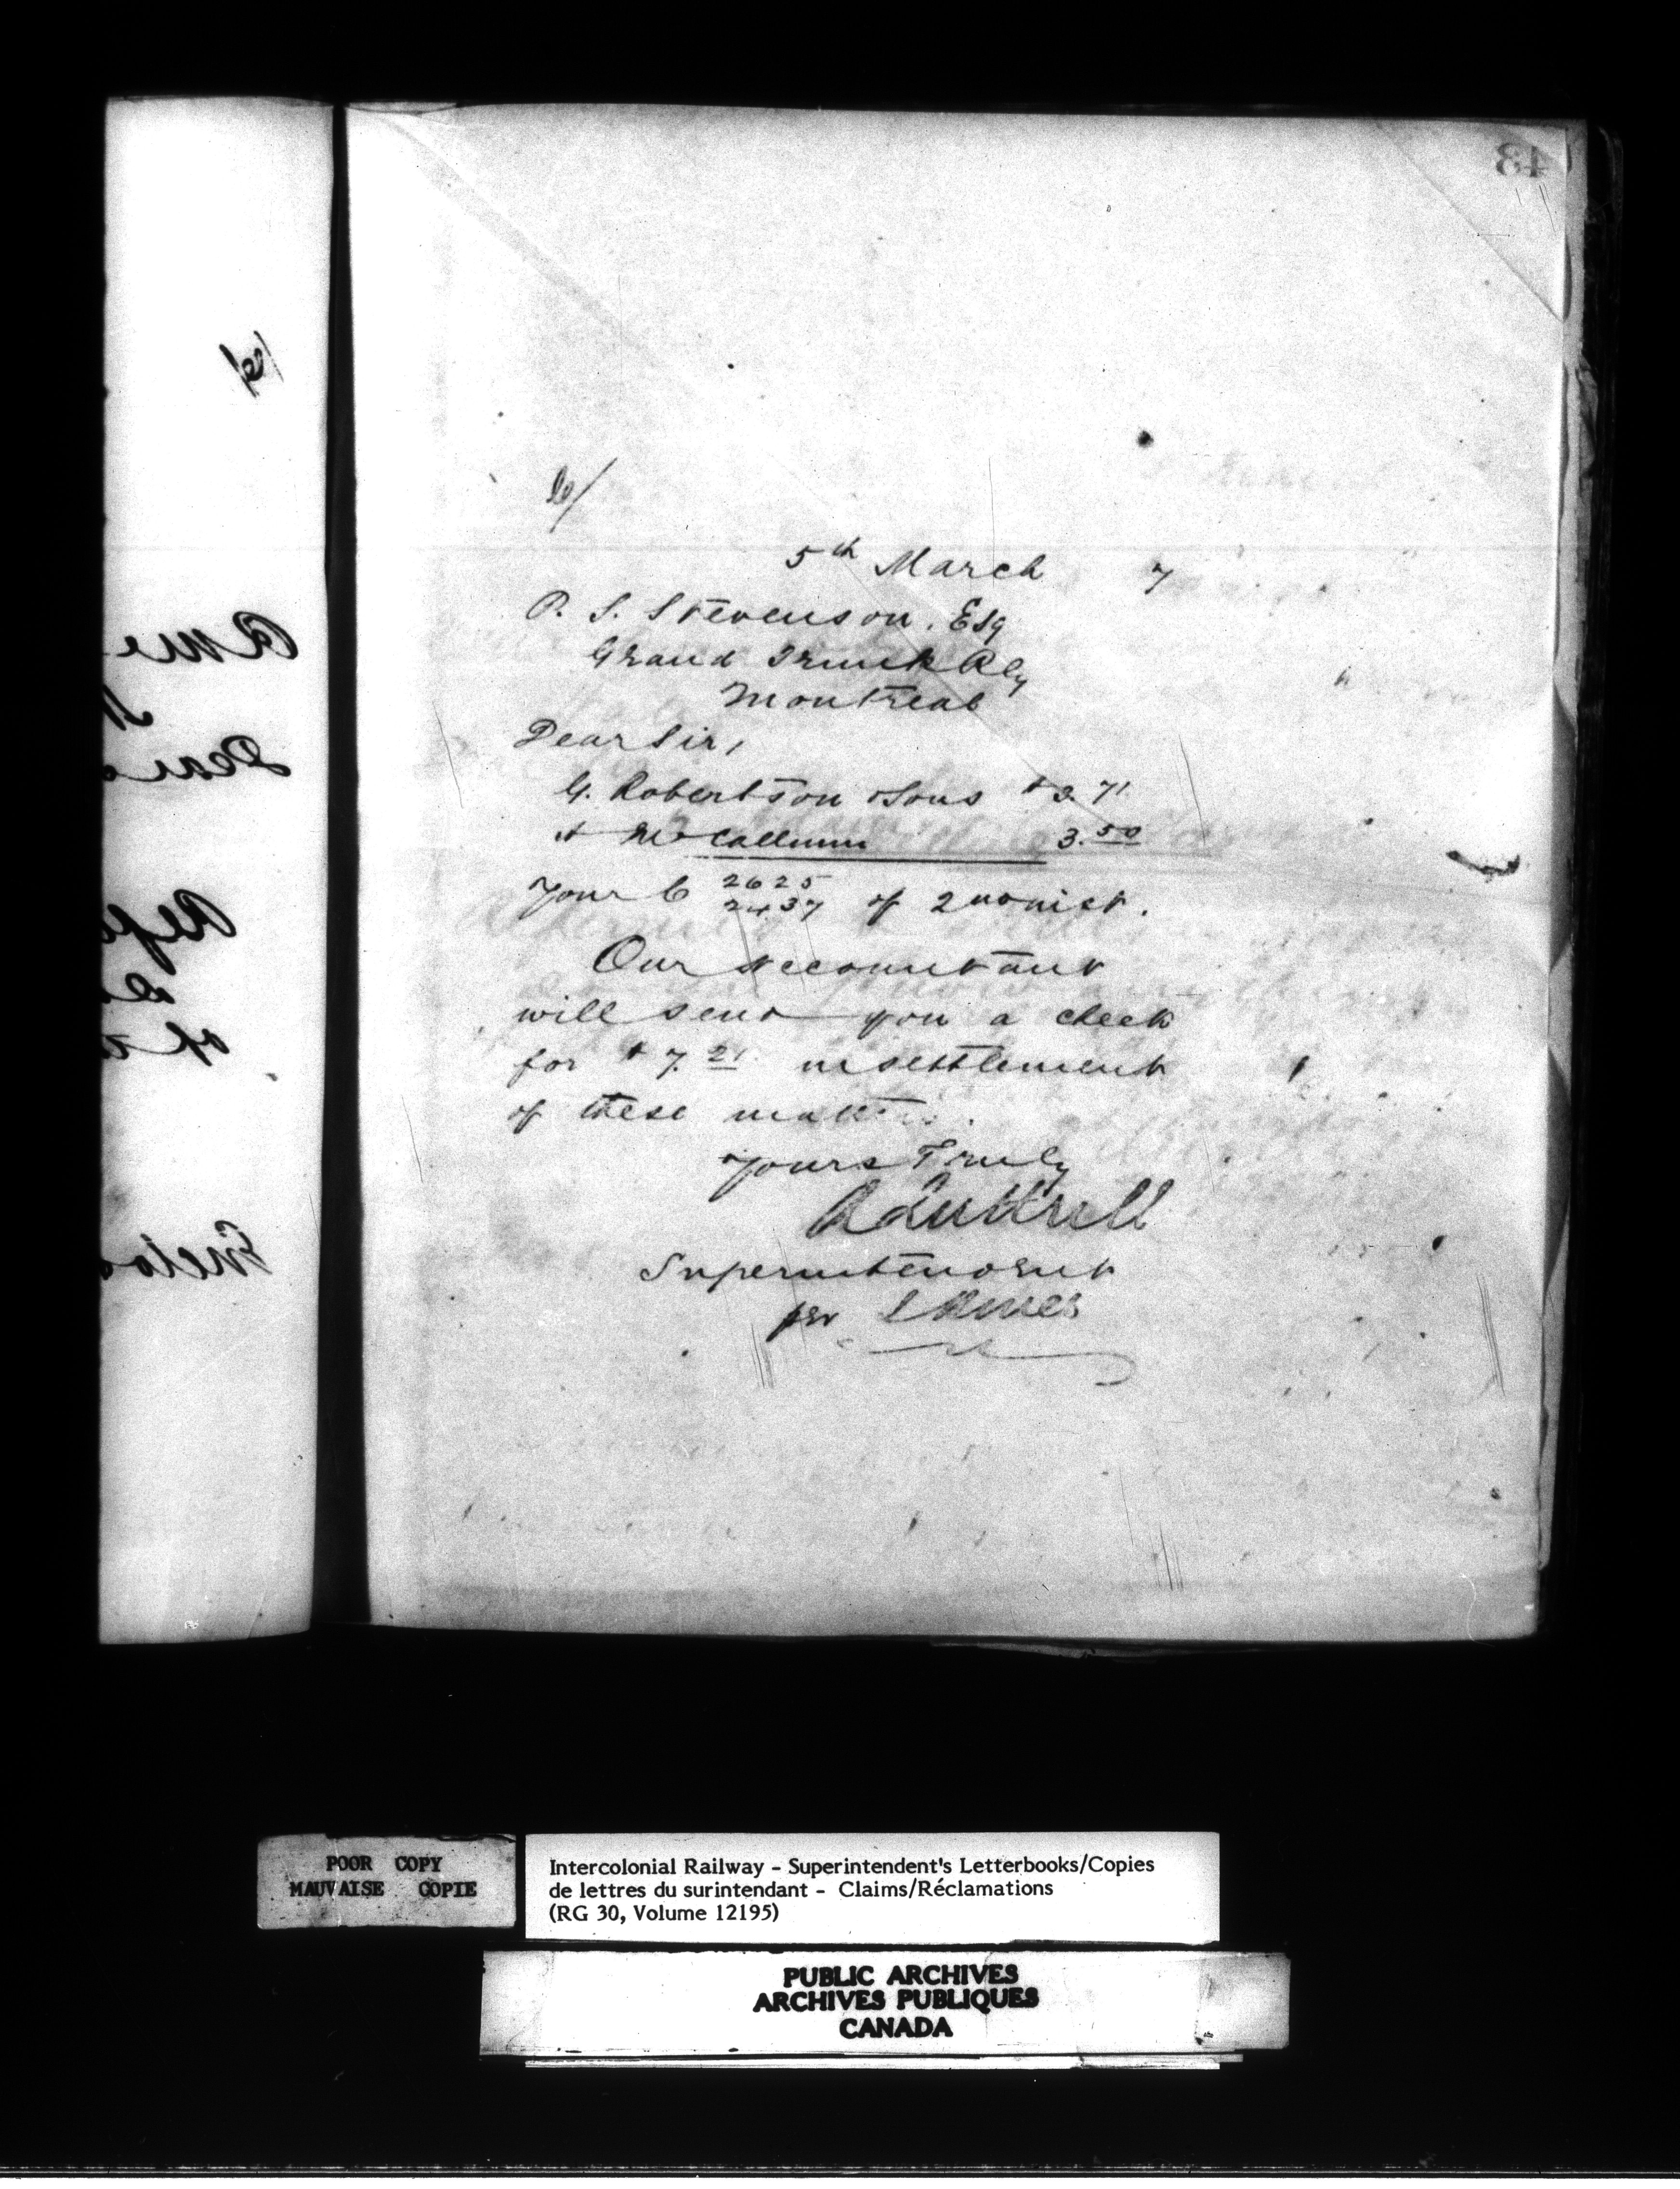 43
C/
5th March 7
P. S. Stevenson. Esq
Grand Trunk Rly
Montreal
Dear Sir,
G. Robertson & Sons $3.71
A McCallum 3.50
Your C 2625
2437 of 2nd inst.
Our Accountant
will send you a check
for $7.21 in settlement
of these matters.
Yours Truly
Superintendent
per
POOR COPY
MAUVAISE COPIE
Intercolonial Railway - Superintendent's Letterbooks/Copies
de lettres du surintendant - Claims/Réclamations
(RG 30, Volume 12195)
PUBLIC ARCHIVES
ARCHIVES PUBLIQUES
CANADA